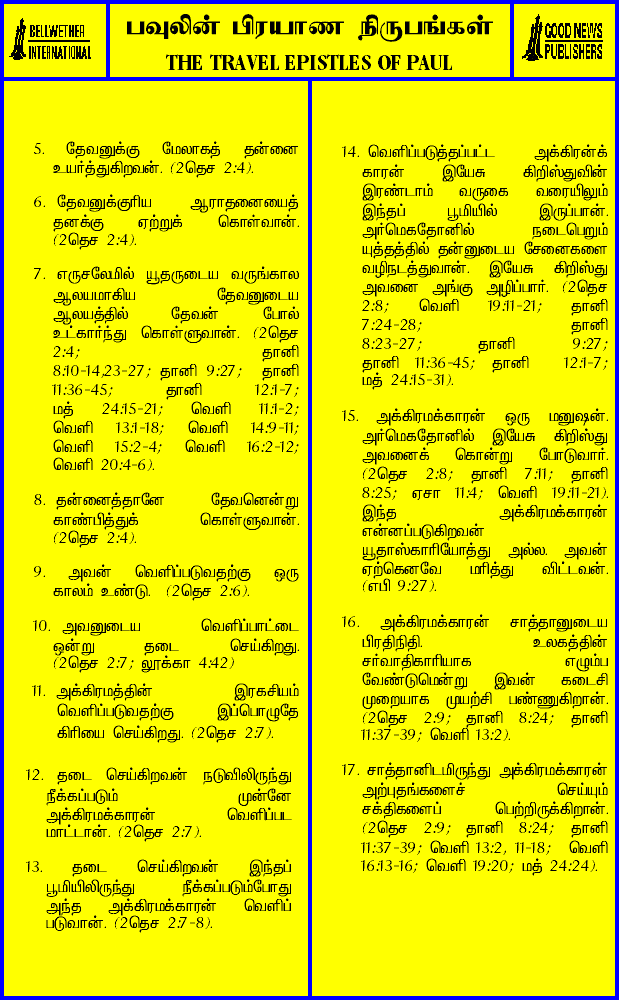 BELLWETHER
INTERNATIONAL
பவுலின் பிரயாண நிருபங்கள்
THE TRAVEL EPISTLES OF PAUL
GOOD NEWS
PUBLISHERS
5. தேவனுக்கு மேலாகத் தன்னை
உயர்த்துகிறவன். (2தெச 2:4).
6. தேவனுக்குரிய ஆராதனையைத்
தனக்கு ஏற்றுக் கொள்வான்.
(2தெச 2:4).
7. எருசலேமில் யூதருடைய வருங்கால
ஆலயமாகிய தேவனுடைய
ஆலயத்தில் தேவன் போல்
உட்கார்ந்து கொள்ளுவான். (2தெச
2:4; தானி
8:10-14,23-27; தானி 9:27; தானி
11:36-45; தானி 12:1-7;
மத் 24:15-21; வெளி 11:1-2;
வெளி 13:1-18; வெளி 14:9-11;
வெளி 15:2-4; வெளி 16:2-12;
வெளி 20:4-6).
8. தன்னைத்தானே தேவனென்று
காண்பித்துக் கொள்ளுவான்.
(2தெச 2:4).
9. அவன் வெளிப்படுவதற்கு ஒரு
காலம் உண்டு. (2தெச 2:6).
10. அவனுடைய வெளிப்பாட்டை
ஒன்று தடை செய்கிறது.
(2தெச 2:7; லூக்கா 4:42)
11. அக்கிரமத்தின் இரகசியம்
வெளிப்படுவதற்கு இப்பொழுதே
கிரியை செய்கிறது. (2தெச 2:7).
12. தடை செய்கிறவன் நடுவிலிருந்து
நீக்கப்படும் முன்னே
அக்கிரமக்காரன் வெளிப்பட
மாட்டான். (2தெச 2:7).
13. தடை செய்கிறவன் இந்தப்
பூமியிலிருந்து நீக்கப்படும்போது
அந்த அக்கிரமக்காரன் வெளிப்
படுவான். (2தெச 2:7-8).
14. வெளிப்படுத்தப்பட்ட அக்கிரன்க்
காரன் இயேசு கிறிஸ்துவின்
இரண்டாம் வருகை வரையிலும்
இந்தப் பூமியில் இருப்பான்.
அர்மெகதோனில் நடைபெறும்
யுத்தத்தில் தன்னுடைய சேனைகளை
வழிநடத்துவான். இயேசு கிறிஸ்து
அவனை அங்கு அழிப்பார். (2தெச
2:8; வெளி 19:11-21; தானி
7:24-28; தானி
8:23-27; தானி 9:27;
தானி 11:36-45; தானி 12:1-7;
மத் 24:15-31).
15. அக்கிரமக்காரன் ஒரு மனுஷன்.
அர்மெகதோனில் இயேசு கிறிஸ்து
அவனைக் கொன்று போடுவார்.
(2தெச 2:8; தானி 7:11; தானி
8:25; ஏசா 11:4; வெளி 19:11-21).
இந்த அக்கிரமக்காரன்
என்னப்படுகிறவன்
யூதாஸ்காரியோத்து அல்ல. அவன்
ஏற்கெனவே மரித்து விட்டவன்.
(எபி 9:27).
16. அக்கிரமக்காரன் சாத்தானுடைய
பிரதிநிதி. உலகத்தின்
சர்வாதிகாரியாக எழும்ப
வேண்டுமென்று இவன் கடைசி
முறையாக முயற்சி பண்ணுகிறான்.
(2தெச 2:9; தானி 8:24; தானி
11:37-39; வெளி 13:2).
17. சாத்தானிடமிருந்து அக்கிரமக்காரன்
அற்புதங்களைச் செய்யும்
சக்திகளைப் பெற்றிருக்கிறான்.
(2தெச 2:9; தானி 8:24; தானி
11:37-39; வெளி 13:2, 11-18; வெளி
16:13-16; வெளி 19:20; மத் 24:24).